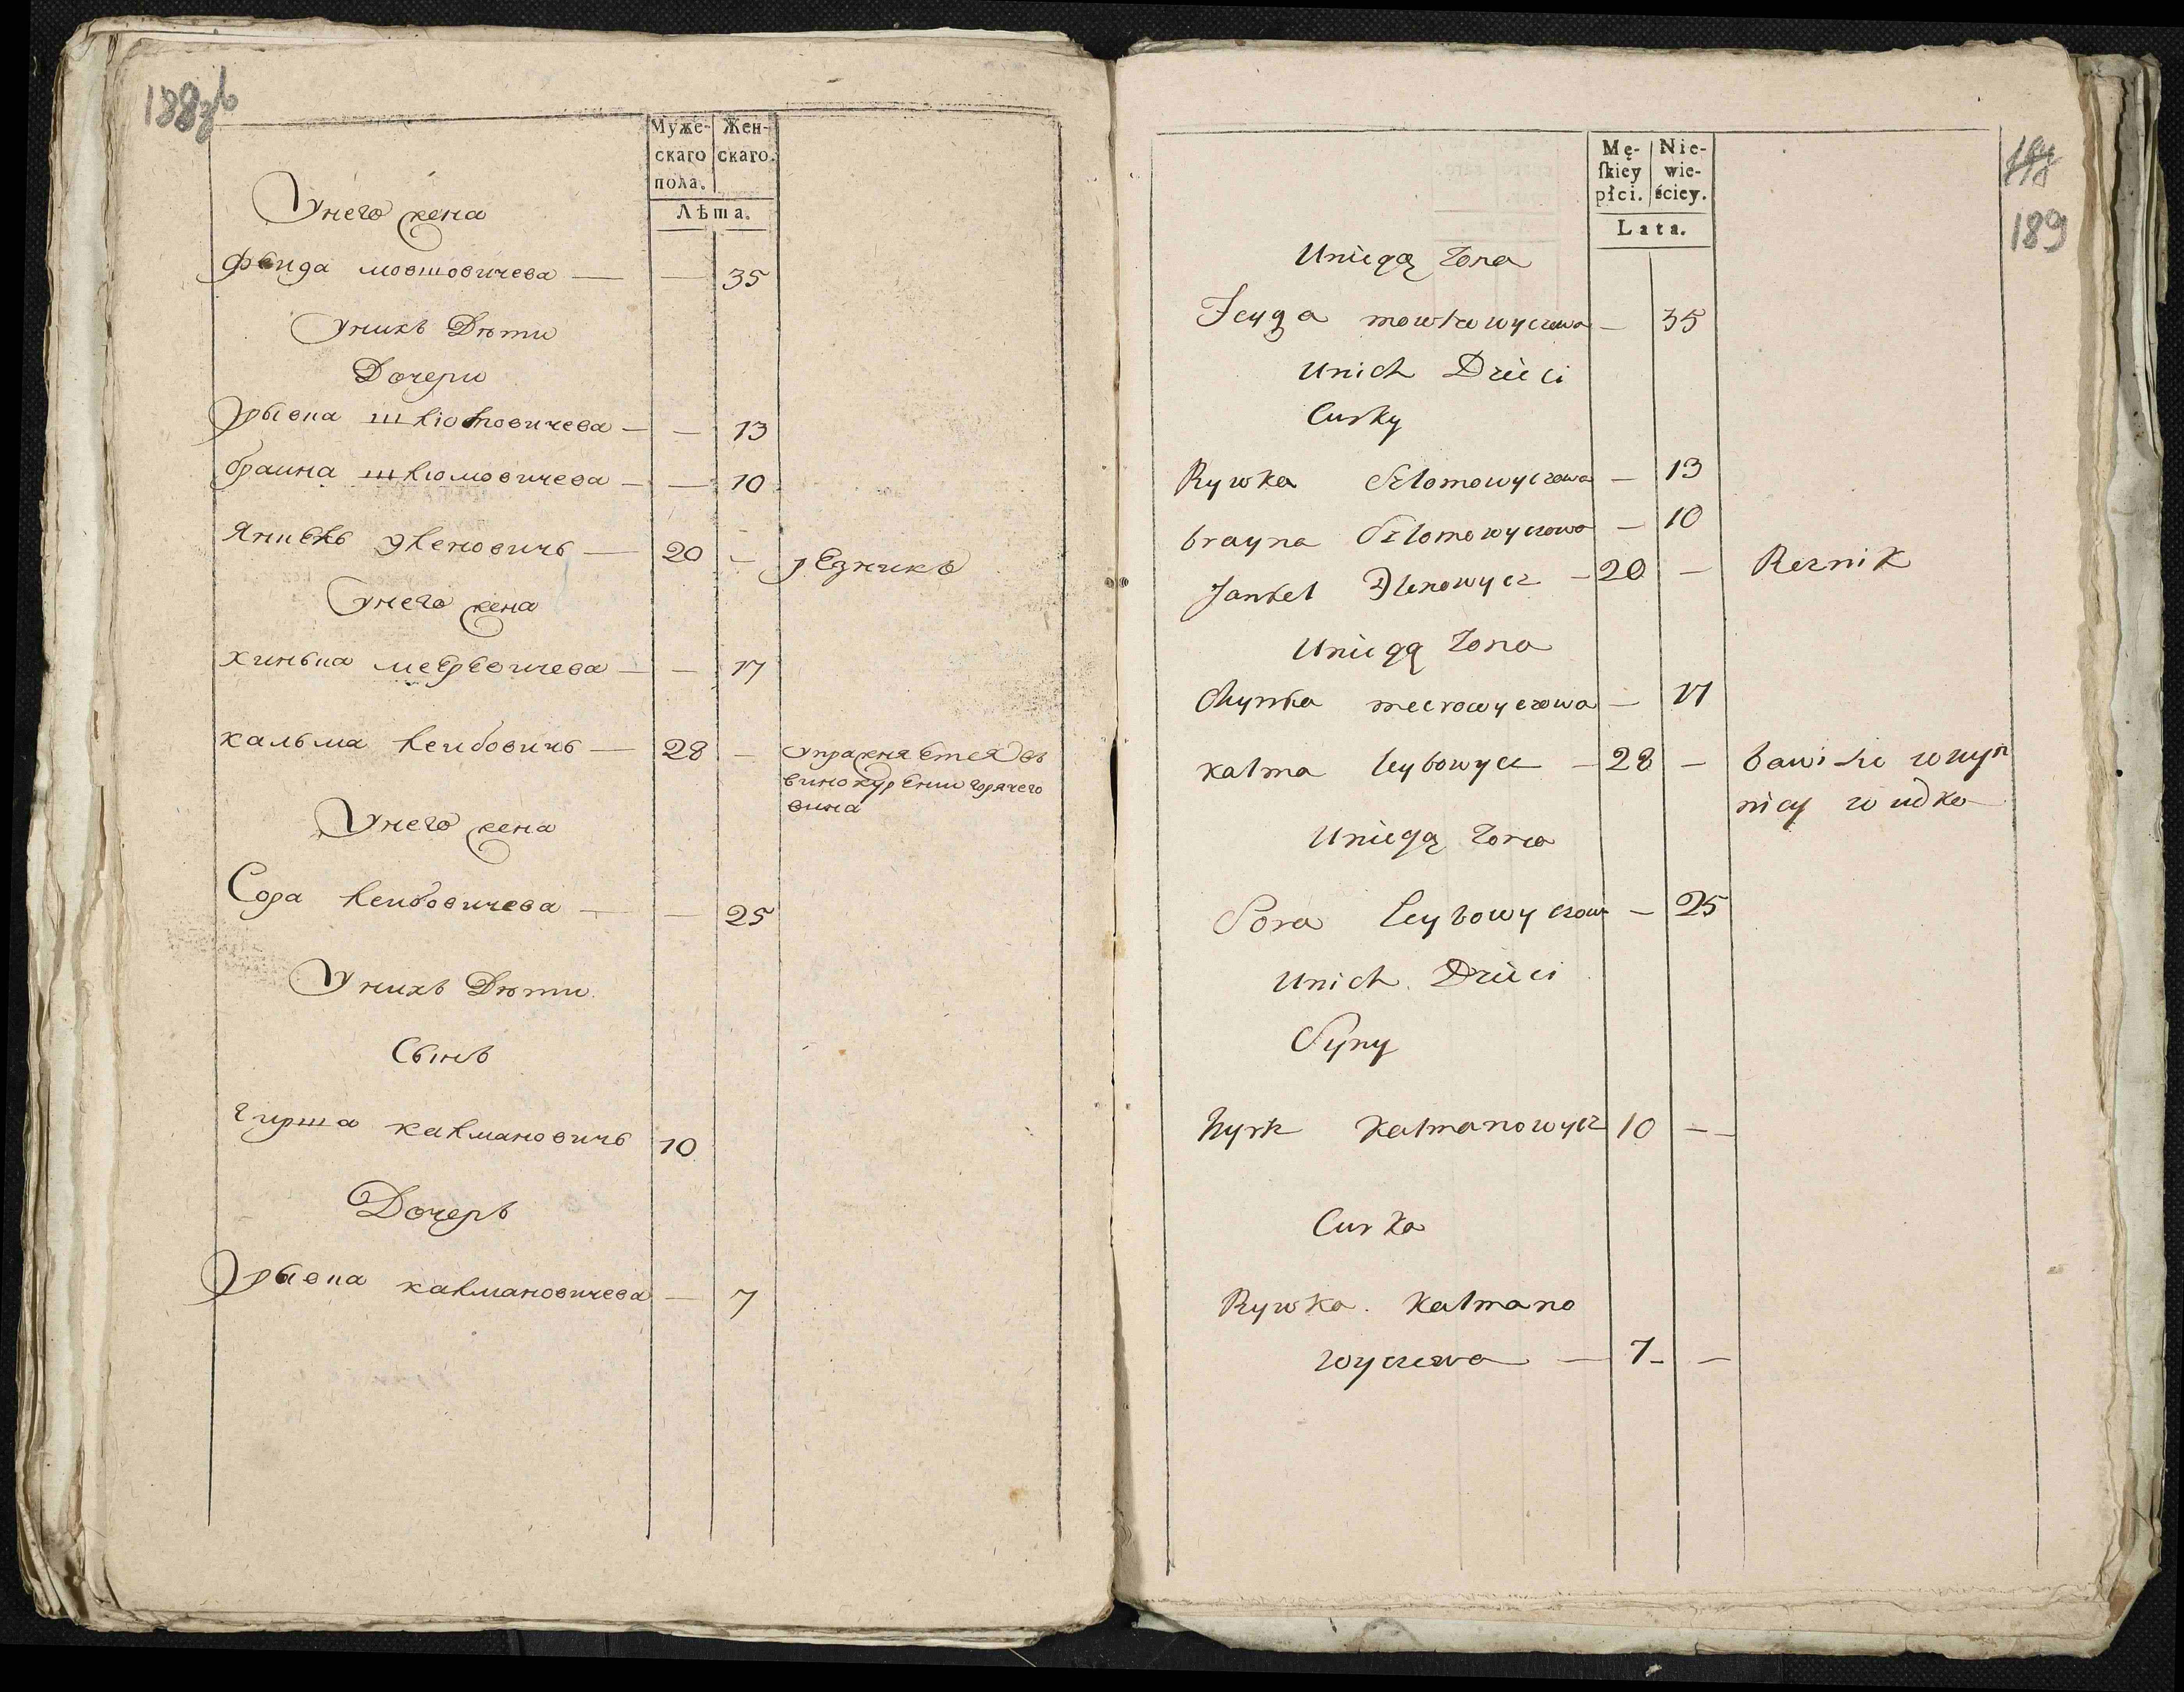 188об
Муже- Жен-
скаго скаго.
пола.
Лѣта.
Унего жена
Феида мовшовичева — — 35
Унихъ Дѣти
Дочери
рывка шлiомовичева — — 13
браина шлюмовичева — — 10
Янкель Эленовичъ — 20 — рЕзникъ
Унего жена
хинька меЕровичева — — 17
Кальма Леибовичъ — 28 — УпражняЕтся въ
винокурЕнии горячего
вина
Унего жена
Сора Леибовичева — — 25
Унихъ Дѣти
Сынъ
Гирша калмановичъ 10
Дочерь
рывка калмановичева — 7
189
Mę- Nie-
ſkiey wie-
płci. ściey.
Lata.
Uniegą Zona
Feyga mowszowyczowa — 35
Unich Dzieci
Curky
Rywka Szlomowyczowa — 13
brayna Szlomowyczowa — 10
Jankel Elenowycz — 20 — Reznik
Uniegą Zona
Chynka meerowyczowa — 17
Kalma leybowycz — 28 — bawi sie wnyn
nicy wudko
Uniegą Zona
Sora leybowyczow — 25
Unich Dzieci
Syny
hyrsz Kalmanowycz 10 — —
Curka
Rywka Kalmano
wyczowa — 7 — —